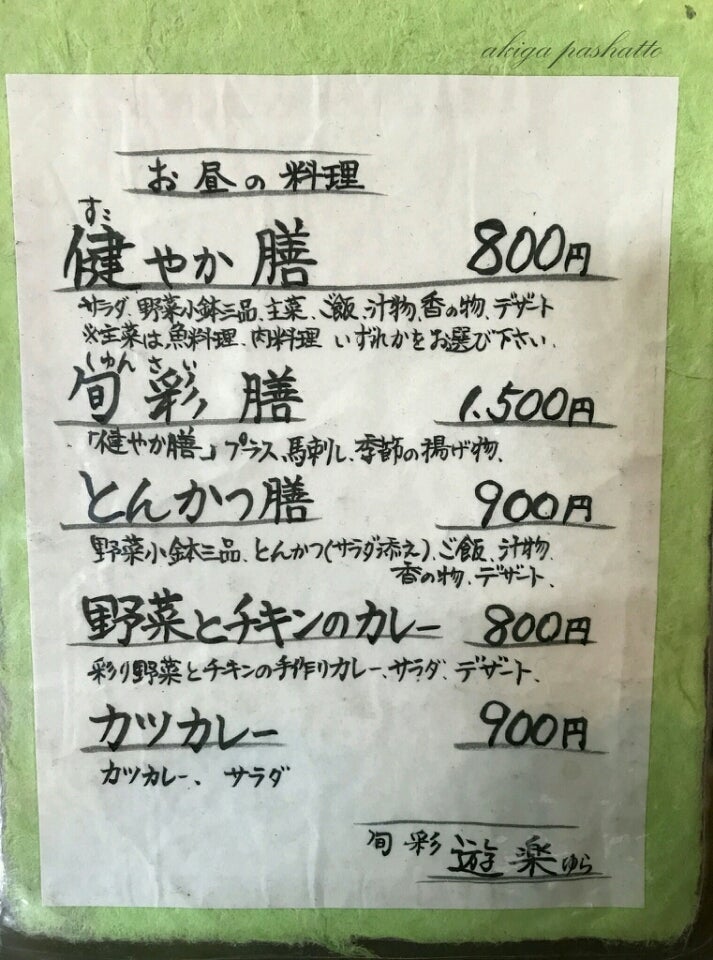 akiga pashatto
お昼の料理
すこ
健やか膳 800円
サラダ、野菜小鉢三品、主菜、ご飯、汁物、香の物、デザート
※主菜は魚料理、肉料理 いずれかをお選び下さい、
しゅん さい
旬彩膳 1,500円
「健やか膳」プラス、馬刺し、季節の揚げ物、
とんかつ膳 900円
野菜小鉢三品、とんかつ(サラダ添え)、ご飯、汁物
香の物、デザート、
野菜とチキンのカレー 800円
彩り野菜とチキンの手作りカレー、サラダ、デザート、
カツカレー 900円
カツカレー、サラダ
旬彩 遊楽 ゆら